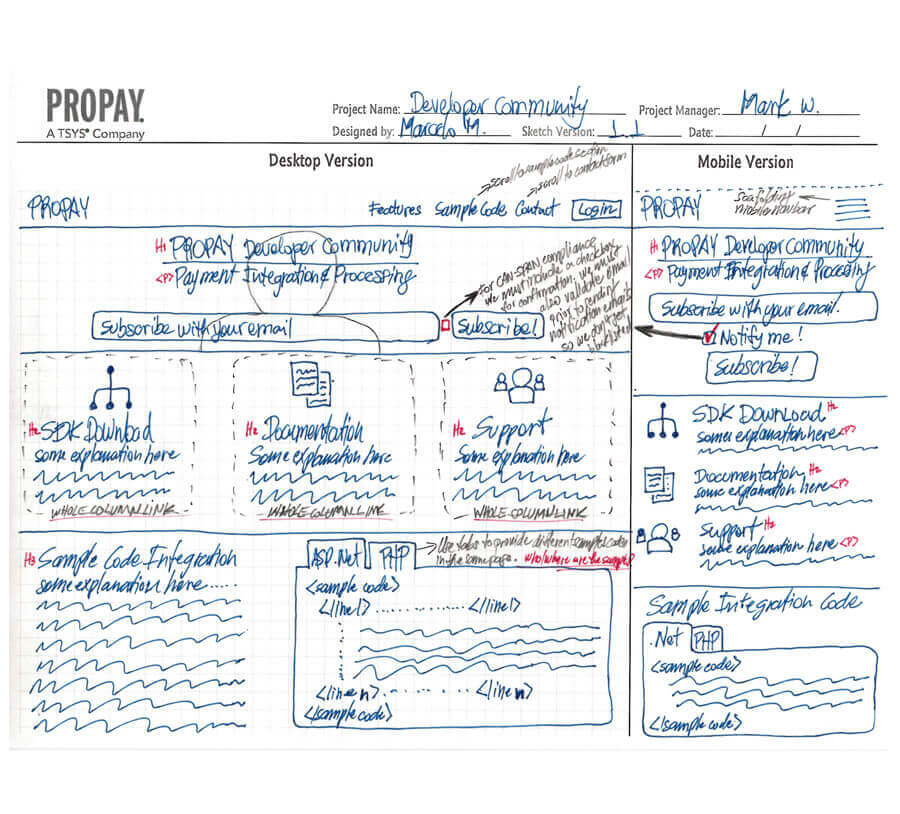 PROPAY.
A TSYS® Company
Project Name: Developer Community
Project Manager: Mark W.
Designed by: Marcelo M.
Sketch Version: 1.1
Date: / /
Desktop Version
Mobile Version
scroll to sample code section
scroll to contact form
PROPAY
Features Sample Code Contact Login
H1 PROPAY Developer Community
<P> Payment Integration & Processing
Subscribe with your email
Subscribe!
For CAN-SPAM compliance
we must include a checkbox
for confirmation, we must
also validate email
prior to sending
notification emails
so we don't get
blacklisted
H2 SDK Download
some explanation here
WHOLE COLUMN LINK
H2 Documentation
Some explanation here
WHOLE COLUMN LINK
H2 Support
Some explanation here
WHOLE COLUMN LINK
H3 Sample Code Integration
some explanation here.....
ASP.Net
PHP
Use tabs to provide different samples codes
in the same page. Who/where are the samples?
<sample code>
<line1> ......... </line1>
<line n> ......... </line n>
</sample code>
PROPAY
mobile navbar
H1 PROPAY Developer Community
<P> Payment Integration & Processing
Subscribe with your email.
Notify me!
Subscribe!
SDK Download H2
some explanation here <P>
Documentation H2
some explanation here <P>
Support H2
some explanation here <P>
Sample Integration Code
.Net
PHP
<sample code>
</sample code>